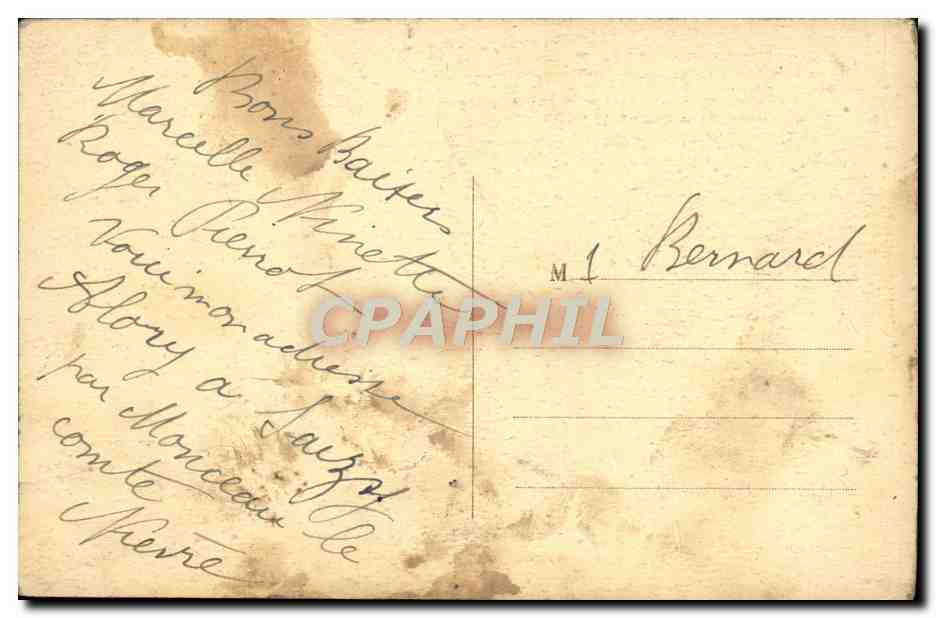 Bons Baisers
Marcelle Ninette
Roger Pierrot
Voici mon adresse
Alozy a Saizy
par Monceaux le
comte
Nièvre
M 1 Bernard
CPAPHIL